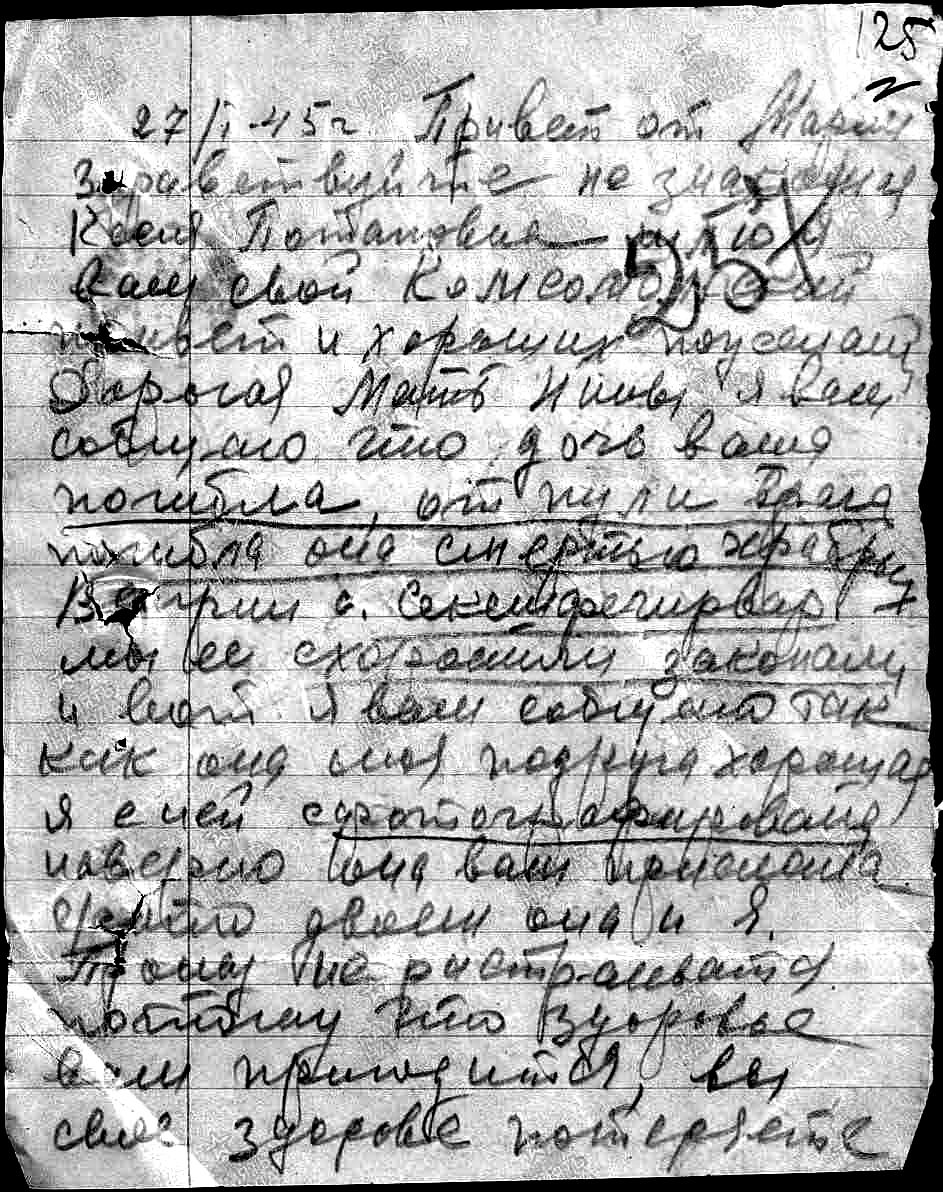 125
27/I-45г. Привет от Марии
Здравствуйте не знакомая
Потаповна шлю я
вам свой Комсомольский
привет и хороших пожеланий
Дорогая Мать Нины я вам
сообщаю что дочь ваша
погибла, от пули врага
погибла она смертью храбрых
Венгрии с.
мы ее схоронили закопали
и вот я вам сообщаю так
как она моя подруга хорошая
я с ней сфотографирована
наверно она вам присылала
фото двоем она и я.
Прошу не растраиватся
потому что здоровье
вам пригодится, вы
свое здоровье потеряете